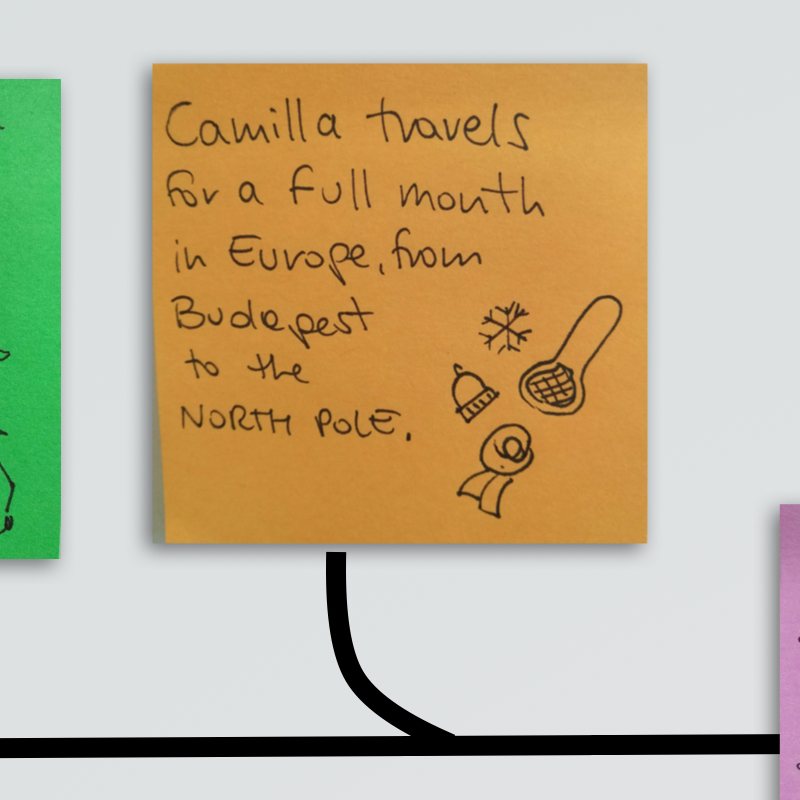 Camilla travels
for a full month
in Europe, from
Budapest
to the
NORTH POLE.